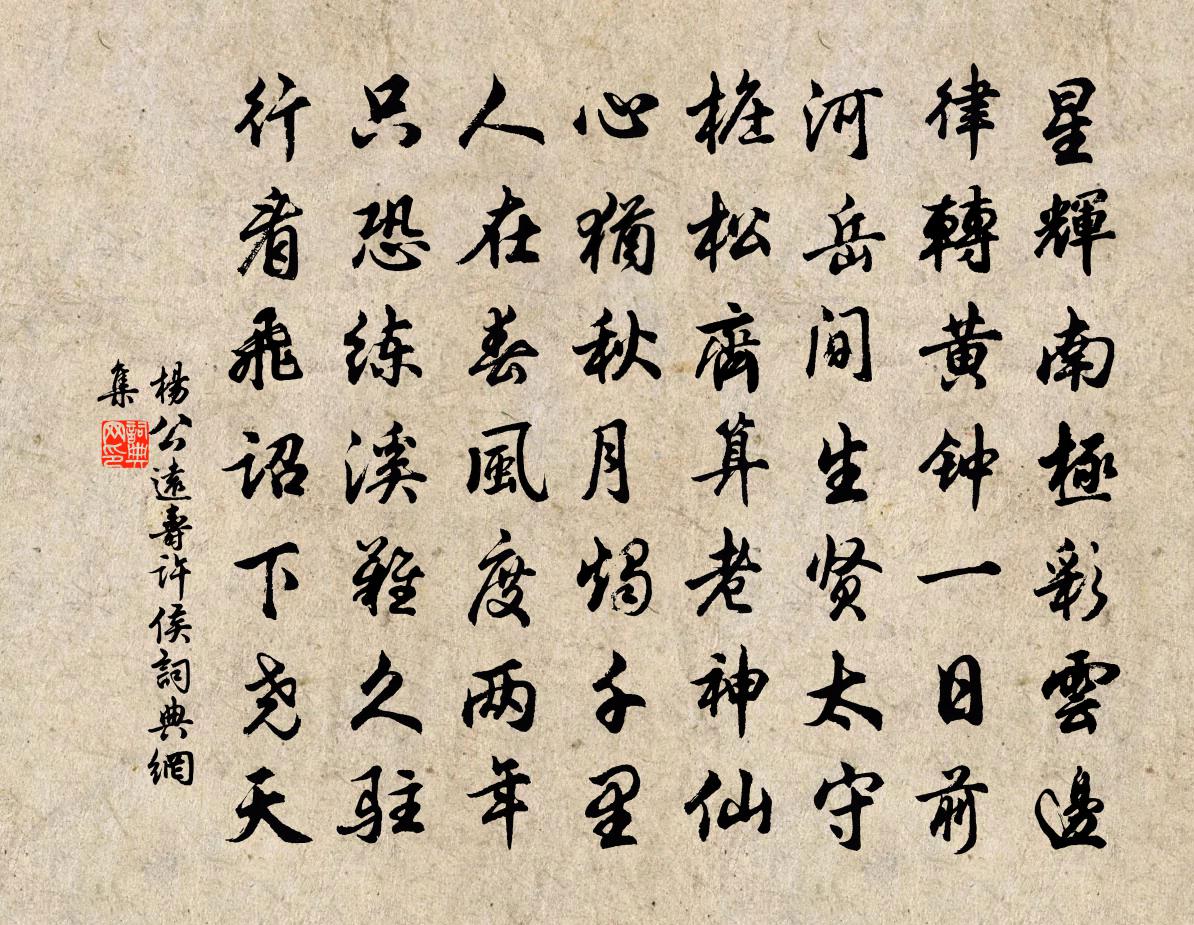 星輝南極彩雲邊
律轉黃钟一日前
河岳间生贤太守
椿松齊算老神仙
心猶秋月燭千里
人在春風度两年
只恐练溪難久駐
行看飛詔下尧天
楊公遠壽許侯詞典網
集
詞典
网印